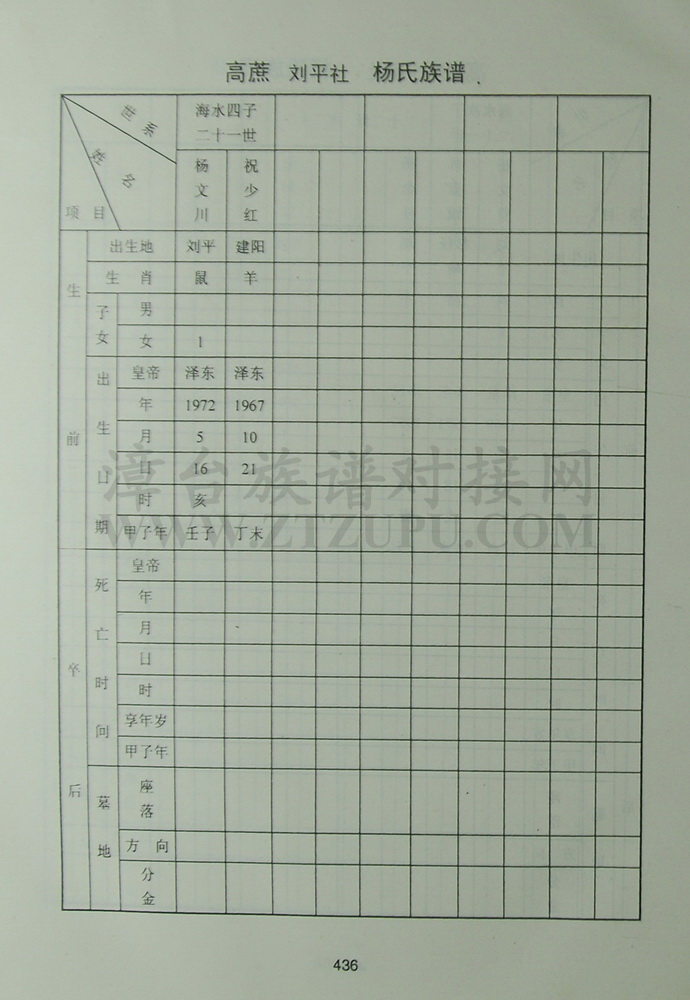 高蔗 刘平社 杨氏族谱
世系 海水四子
二十一世
姓名 杨文川 祝少红
项目
生前 出生地 刘平 建阳
生肖 鼠 羊
子女 男
女 1
出生日期 皇帝 泽东 泽东
年 1972 1967
月 5 10
日 16 21
时 亥
甲子年 壬子 丁未
卒后 死亡时间 皇帝
年
月
日
时
享年岁
甲子年
墓地 座落
方向
分金
漳台族谱对接网
WWW.ZTZUPU.COM
436